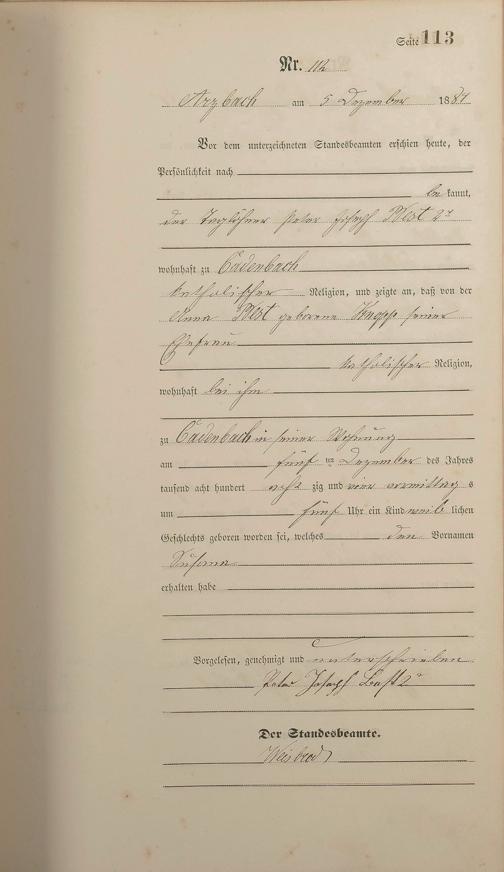 Seite 113
Nr. 112
Arzbach am 5 Dezember 1884
Vor dem unterzeichneten Standesbeamten erschien heute, der
Persönlichkeit nach
be kannt,
der Taglöhner Peter Joseph
wohnhaft zu Cadenbach
katholischer Religion, und zeigte an, daß von der
Anna geborene seiner
Ehefrau
katholischer Religion,
wohnhaft bei ihm
zu Cadenbach in seiner Wohnung
am fünf ten Dezember des Jahres
tausend acht hundert acht zig und vier vormittag s
um fünf Uhr ein Kind weib lichen
Geschlechts geboren worden sei, welches den Vornamen
Susana
erhalten habe
Vorgelesen, genehmigt und unterschrieben
Peter Joseph
Der Standesbeamte.
Weisbrod